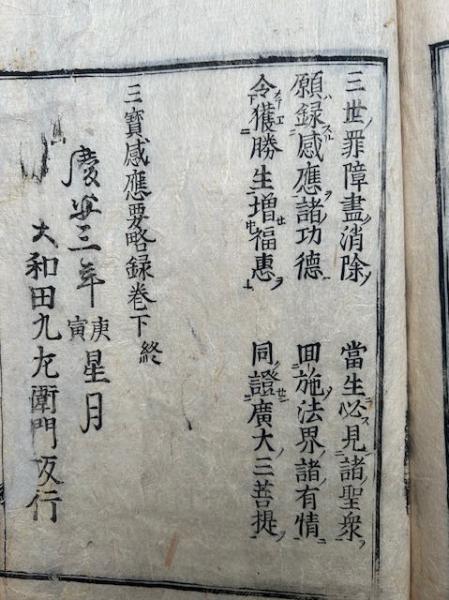 三世罪障盡消除 當生必見諸聖衆
願録感應諸功德 回施法界諸有情
令獲勝生增福惠 同證廣大三菩提
三寶感應要略録卷下 終
慶安三年庚寅星月
大和田九左衛門板行